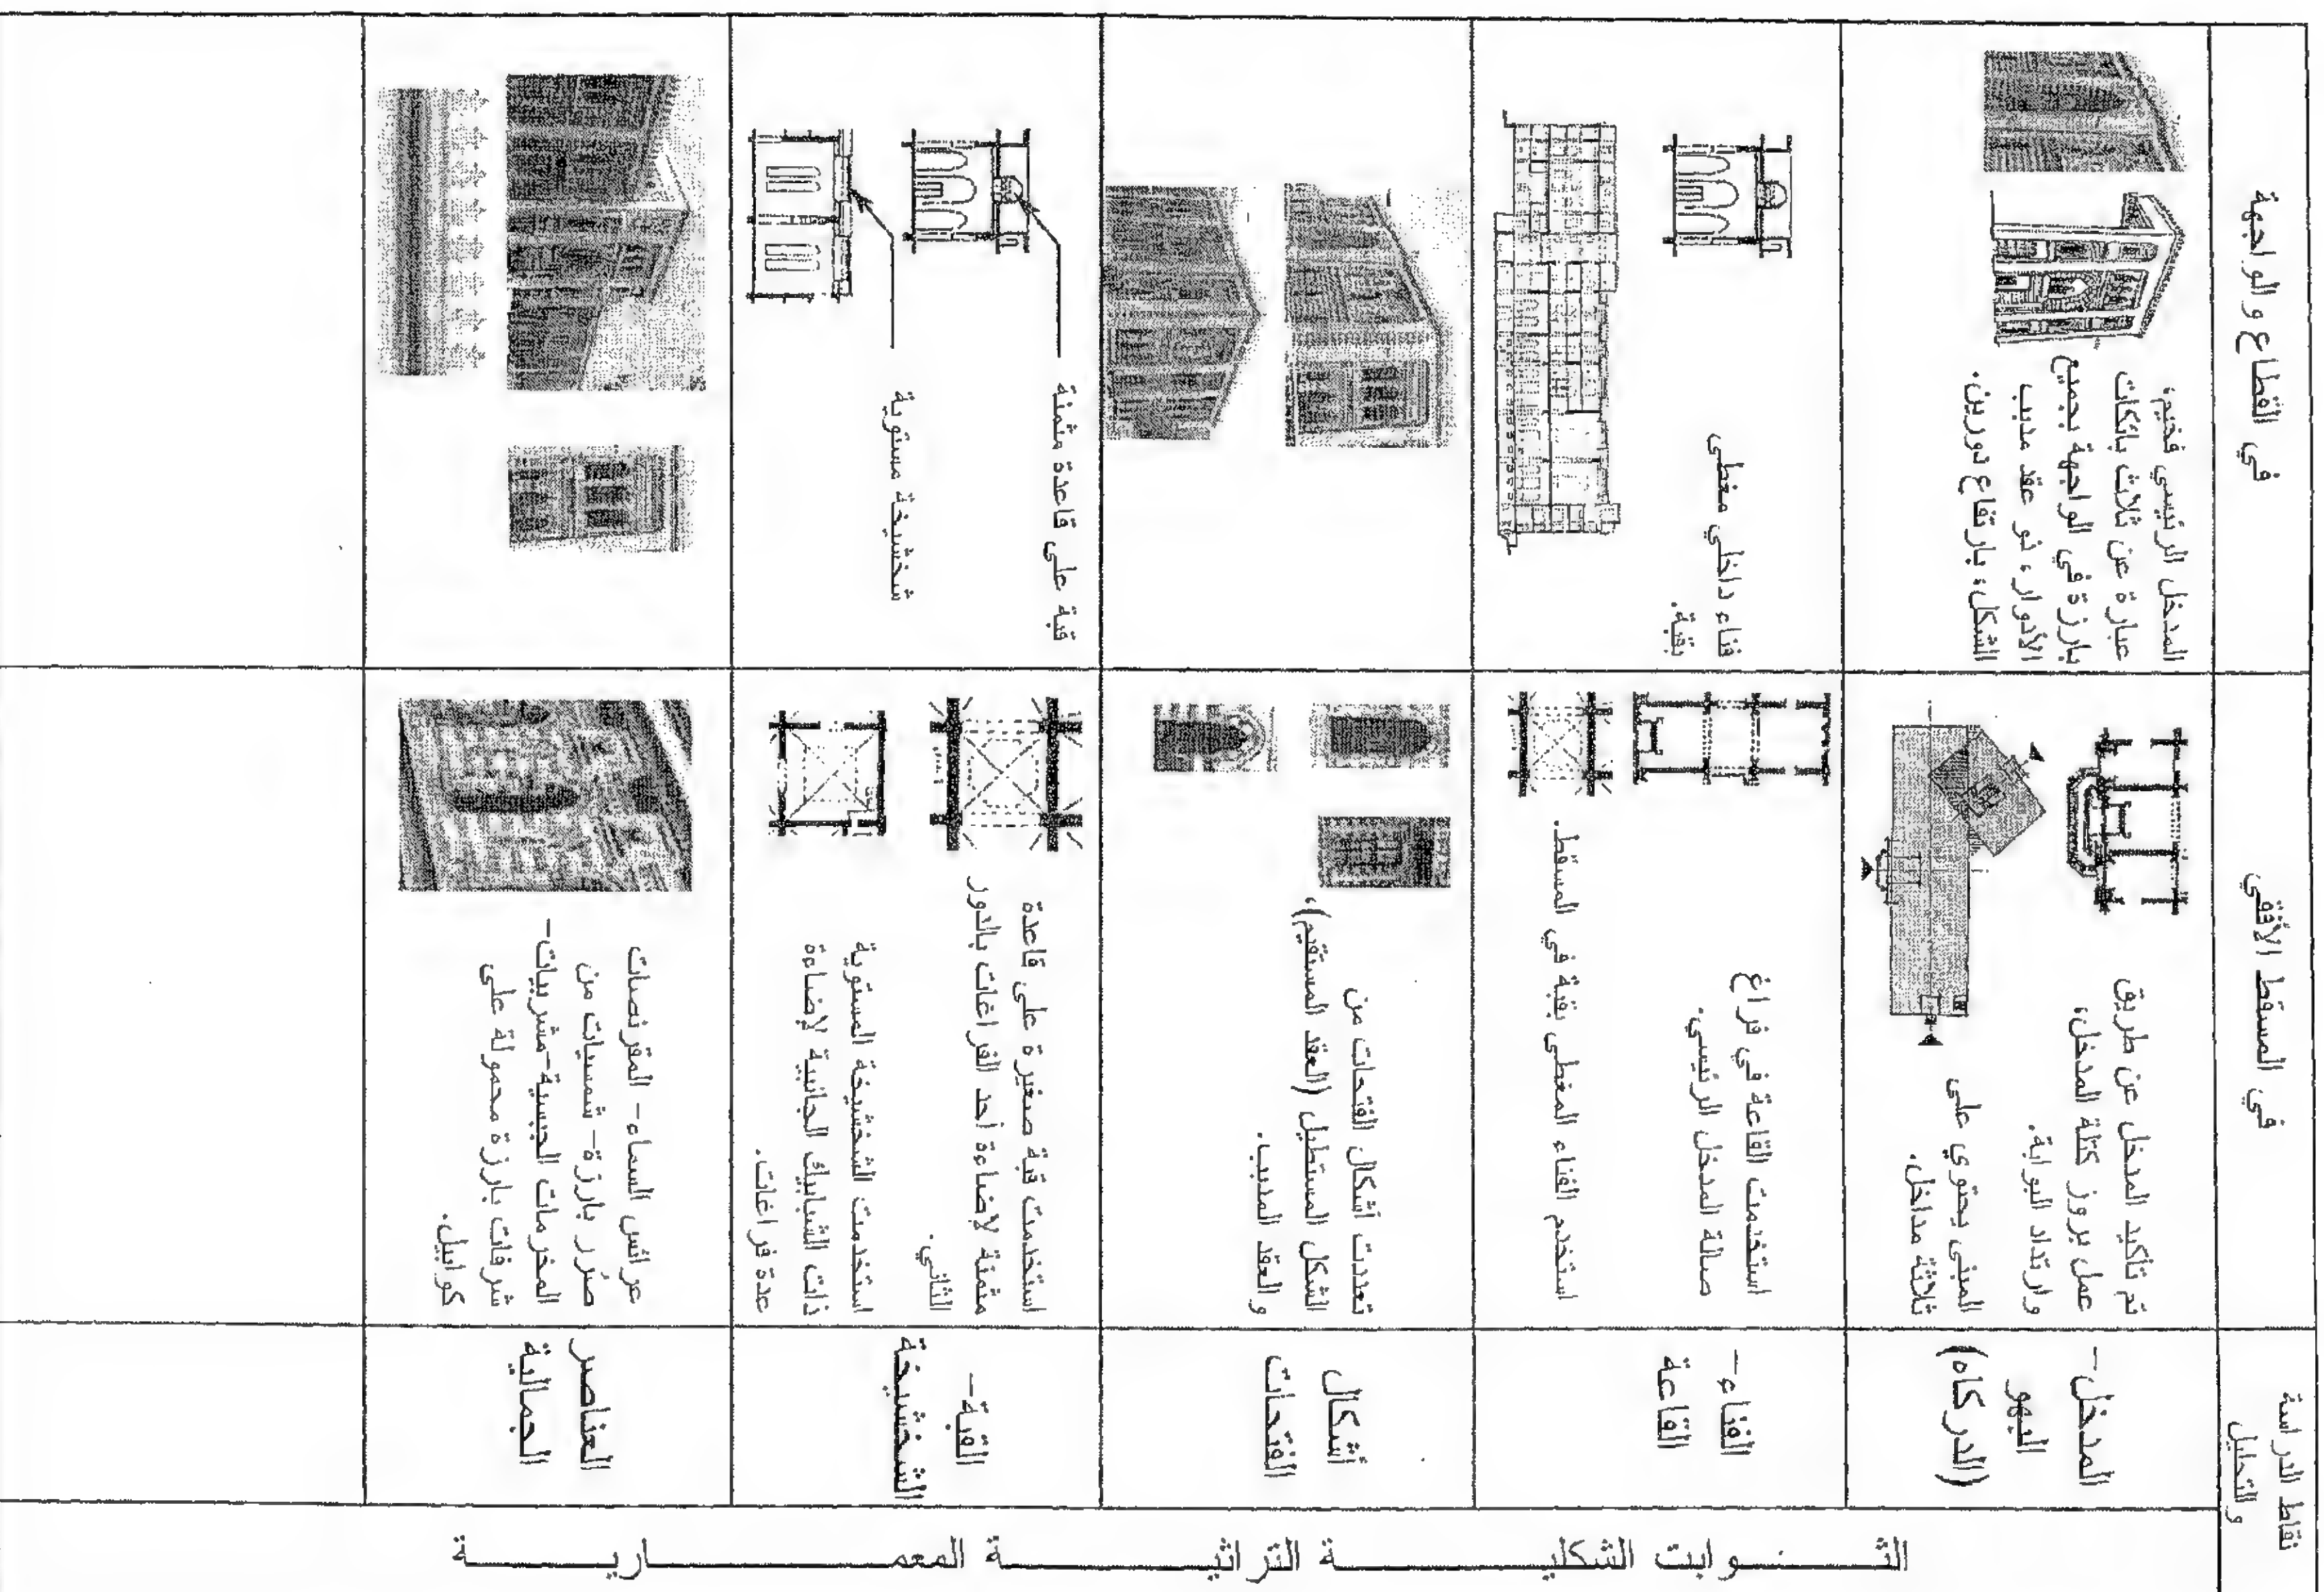 نقاط الدراسة
والتحليل
في المسقط الأفقي
في القطاع والواجهة
الثـــوابت الشكليـــة التراثيـــة المعمـــاريـــة
المدخل-
البهو
(الدركاه)
تم تأكيد المدخل عن طريق
عمل بروز كتلة المدخل،
وارتداد البوابة.
المبنى يحتوي على
ثلاثة مداخل.
المدخل الرئيسي فخيم،
عبارة عن ثلاث بائكات
بارزة في الواجهة بجميع
الأدوار، ذو عقد مدبب
الشكل، بارتفاع دورين.
الفناء-
القاعة
استخدمت القاعة في فراغ
صالة المدخل الرئيسي.
استخدم الفناء المغطى بقبة في المسقط.
فناء داخلي مغطى
بقبة.
أشكال
الفتحات
تعددت أشكال الفتحات من
الشكل المستطيل (العقد المستقيم)،
والعقد المدبب.
القبة-
الشخشيخة
استخدمت قبة صغيرة على قاعدة
مثمنة لإضاءة أحد الفراغات بالدور
الثاني.
استخدمت الشخشيخة المستوية
ذات الشبابيك الجانبية لإضاءة
عدة فراغات.
قبة على قاعدة مثمنة
شخشيخة مستوية
العناصر
الجمالية
عرائس السماء- المقرنصات
صُرر بارزة- شمسيات من
المخرمات الجبسية-مشربيات-
شرفات بارزة محمولة على
كوابيل.